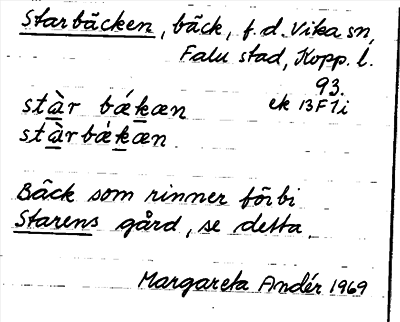 Starbäcken, bäck, f.d. Vika sn,
Falu stad, Kopp. l.
93.
ek 13F1i
stàr bǽkæn
stàrbǽkæn.
Bäck som rinner förbi
Starens gård, se detta.
Margareta Andér 1969